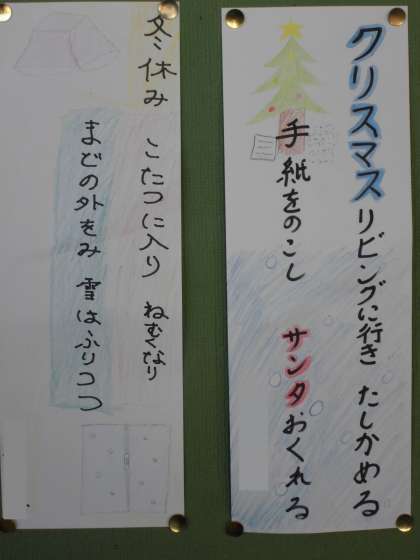 クリスマス リビングに行き たしかめる
手紙をのこし サンタおくれる
冬休み こたつに入り ねむくなり
まどの外をみ 雪はふりつつ